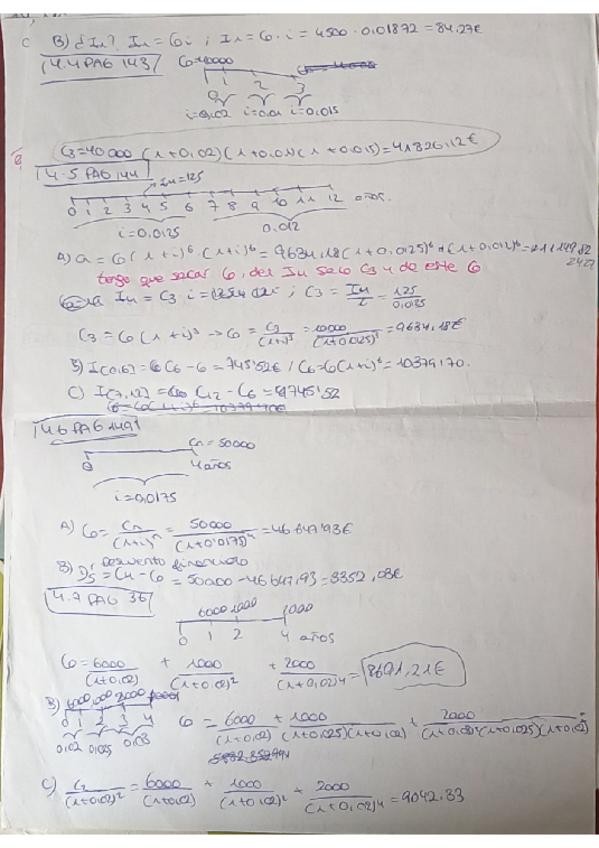 B) ¿In? In = C0 i ; In = C0 · i = 4500 · 0.01872 = 84.27€
4.4 PAG 143 C0=40000
1 2 3
i=0,02 i=0.01 i=0,015
C3=40000 (1+0,02)(1+0,01)(1+0,015)=41826,12€
4.5 PAG 144 I4=125
0 1 2 3 4 5 6 7 8 9 10 11 12 años.
i=0,0125 0,012
A) C0(1+i)^6·(1+i)^6= 9634,18(1+0,0125)^6·(1+0,012)^6=
tengo que sacar C0, del I4 saco C3 y de este C0
I4 = C3 i ; C3 = I4/i = 125/0,0125
C3 = C0(1+i)³ → C0 = C3/(1+i)³ = 10000/(1+0,0125)³ = 9634,18€
B) I[0,6] = C6 - C0 = 745'52€ / C6=C0(1+i)^6 = 10379,70.
C) I[7,12] = C12 - C6 =
4.6 PAG 149
Cn = 50000
0 4 años
i=0,0175
A) C0 = Cn/(1+i)^n = 50000/(1+0'0175)^4 = 46647'93€
Descuento financiero
B) = Cn - C0 = 50000 - 46647,93 = 3352,08€
4.7 PAG 36
6000 1000 2000
0 1 2 4 años
C0 = 6000/(1+0,02) + 1000/(1+0,02)² + 2000/(1+0,02)4 = 8691,21€
B) 6000 1000 2000
0 1 2 3 4 C0 = 6000/(1+0,02) + 1000/(1+0,025)(1+0,02) +
0,02 0,025 0,03
C) C2/(1+0,02)² = 6000/(1+0,02) + 1000/(1+0,02)² + 2000/(1+0,02)4 = 9042.33